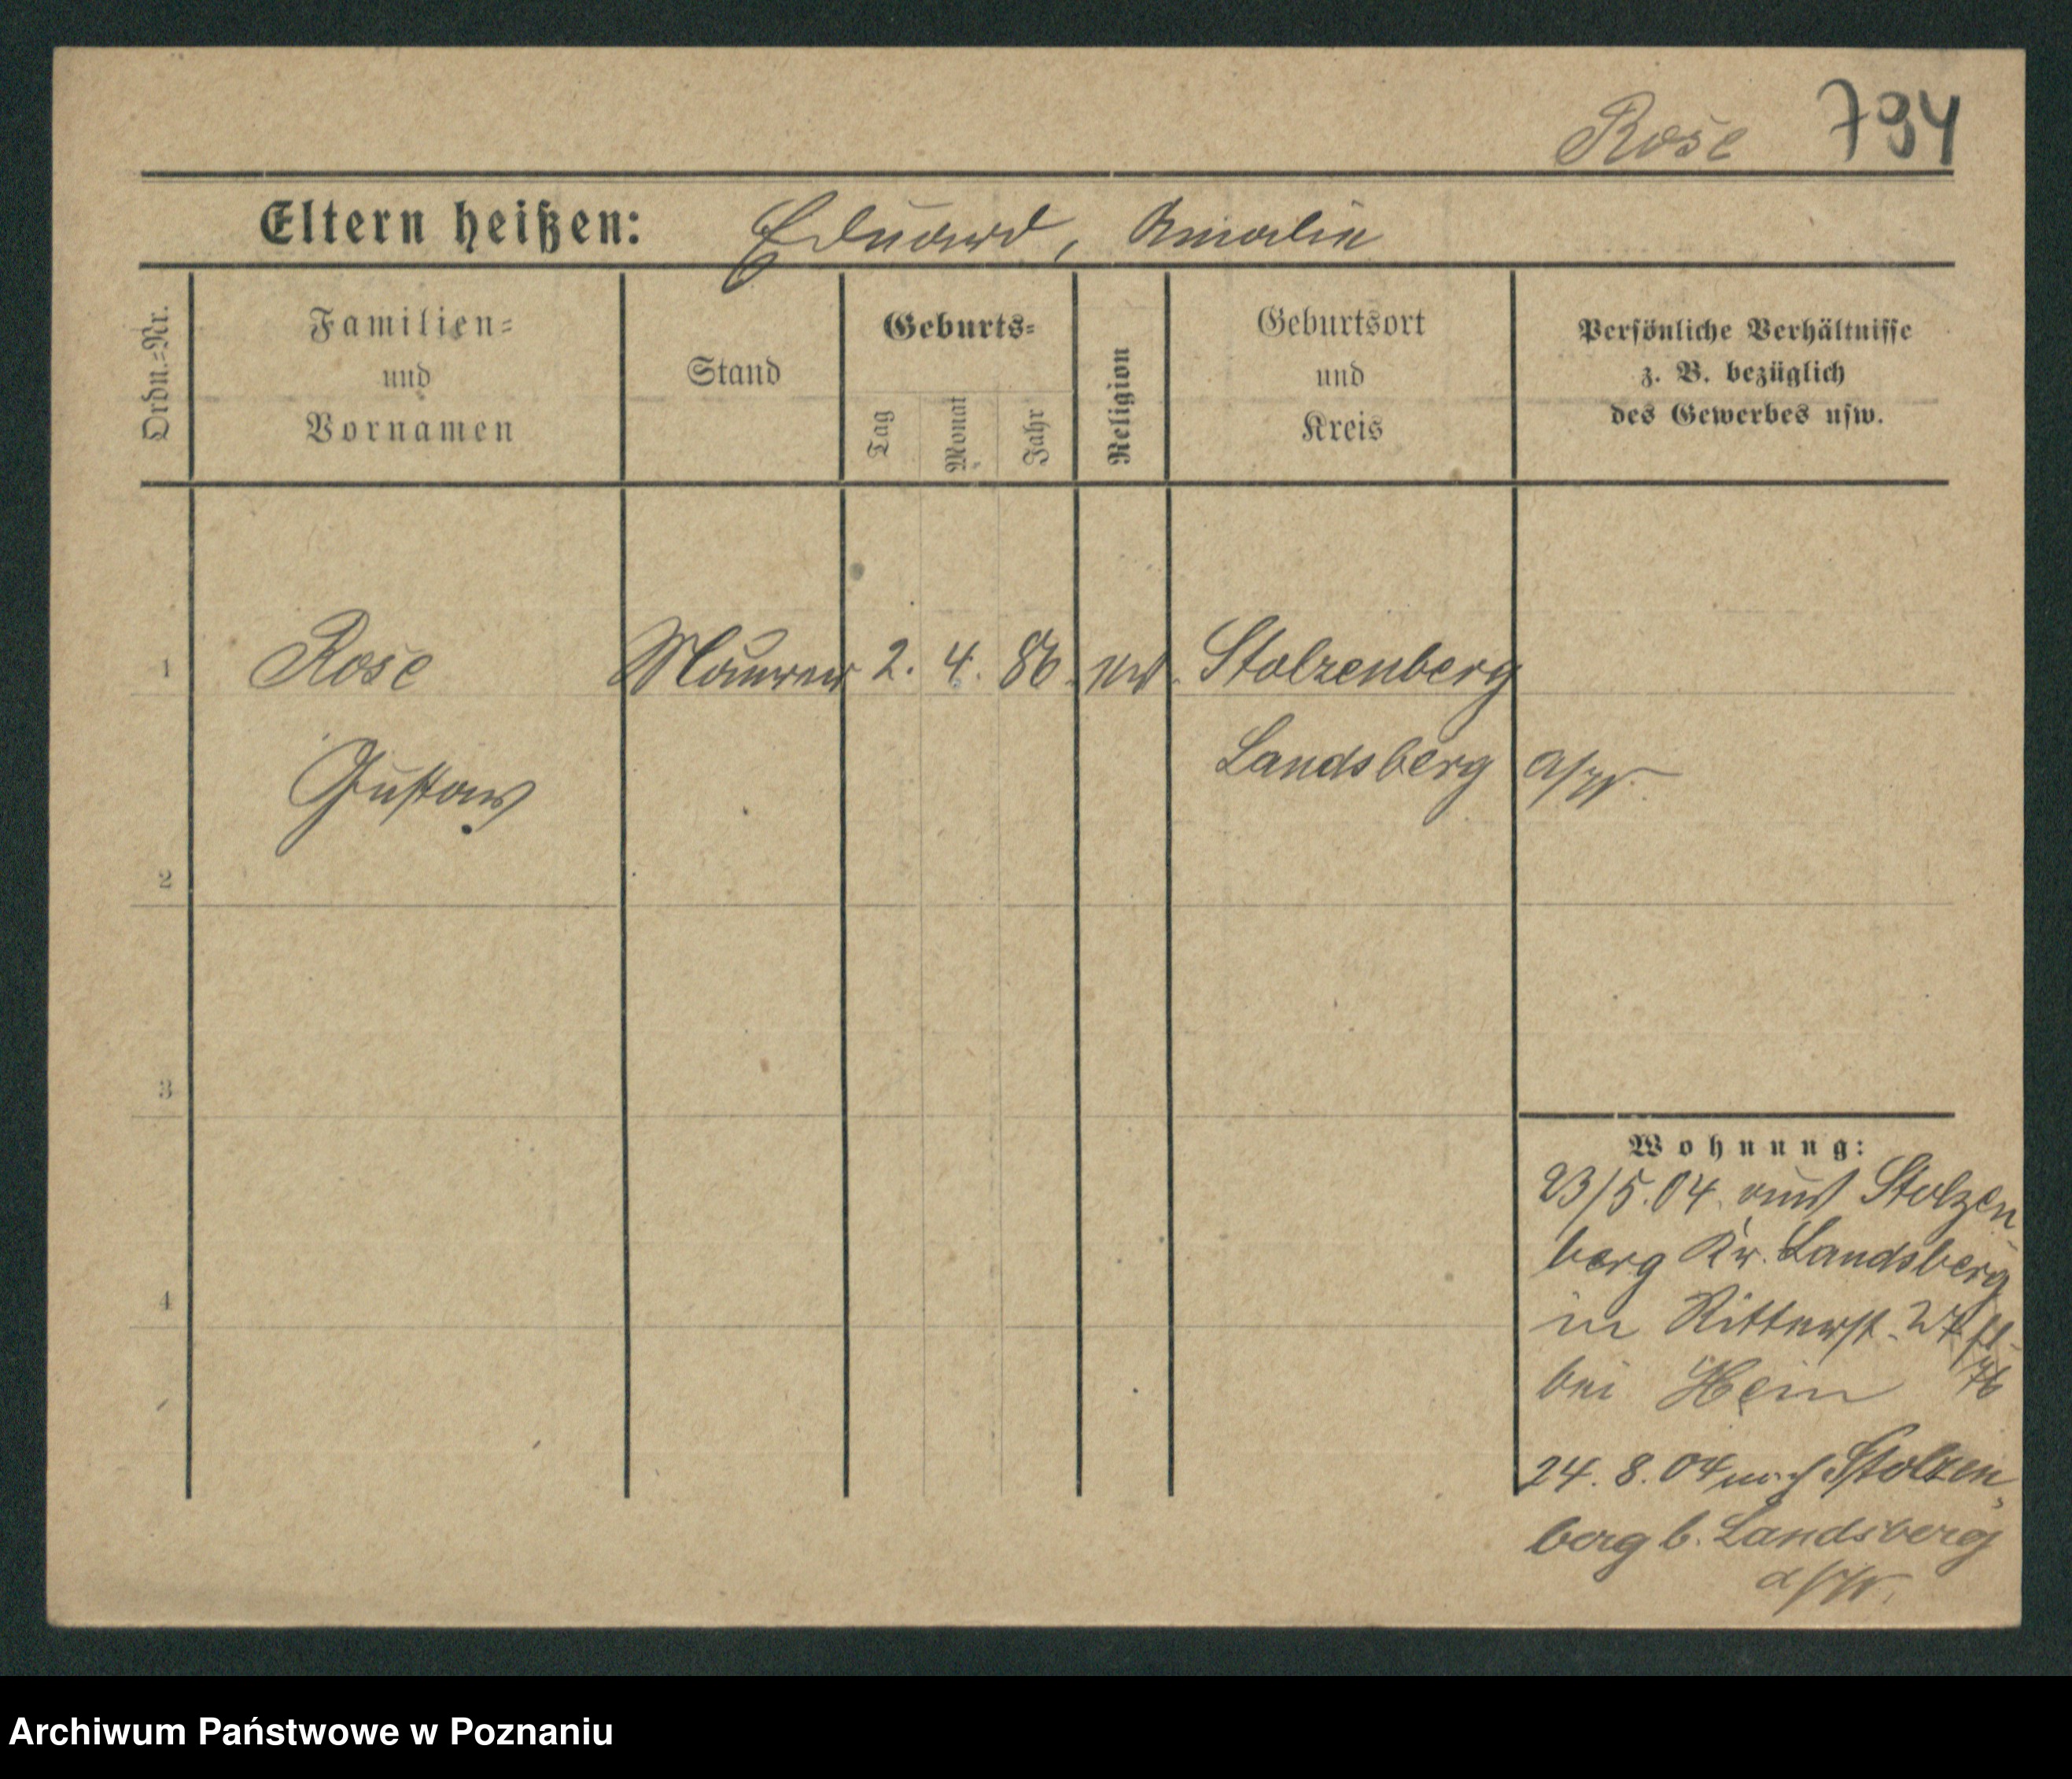 Rose 794
Eltern heißen: Eduard, Amalie
Ordn.=Nr.
Familien=
und
Vornamen
Stand
Geburts=
Tag
Monat
Jahr
Religion
Geburtsort
und
Kreis
Persönliche Verhältnisse
z. B. bezüglich
des Gewerbes usw.
1 Rose Maurer 2. 4. 86. ev. Stolzenberg
Gustav Landsberg a/W.
2
3
4
Wohnung:
23/5.04. aus Stolzen
berg Kr. Landsberg
in Ritterst. 27
bei Hein
24. 8. 04 nach Stolzen
berg b. Landsberg
a/W.
Archiwum Państwowe w Poznaniu